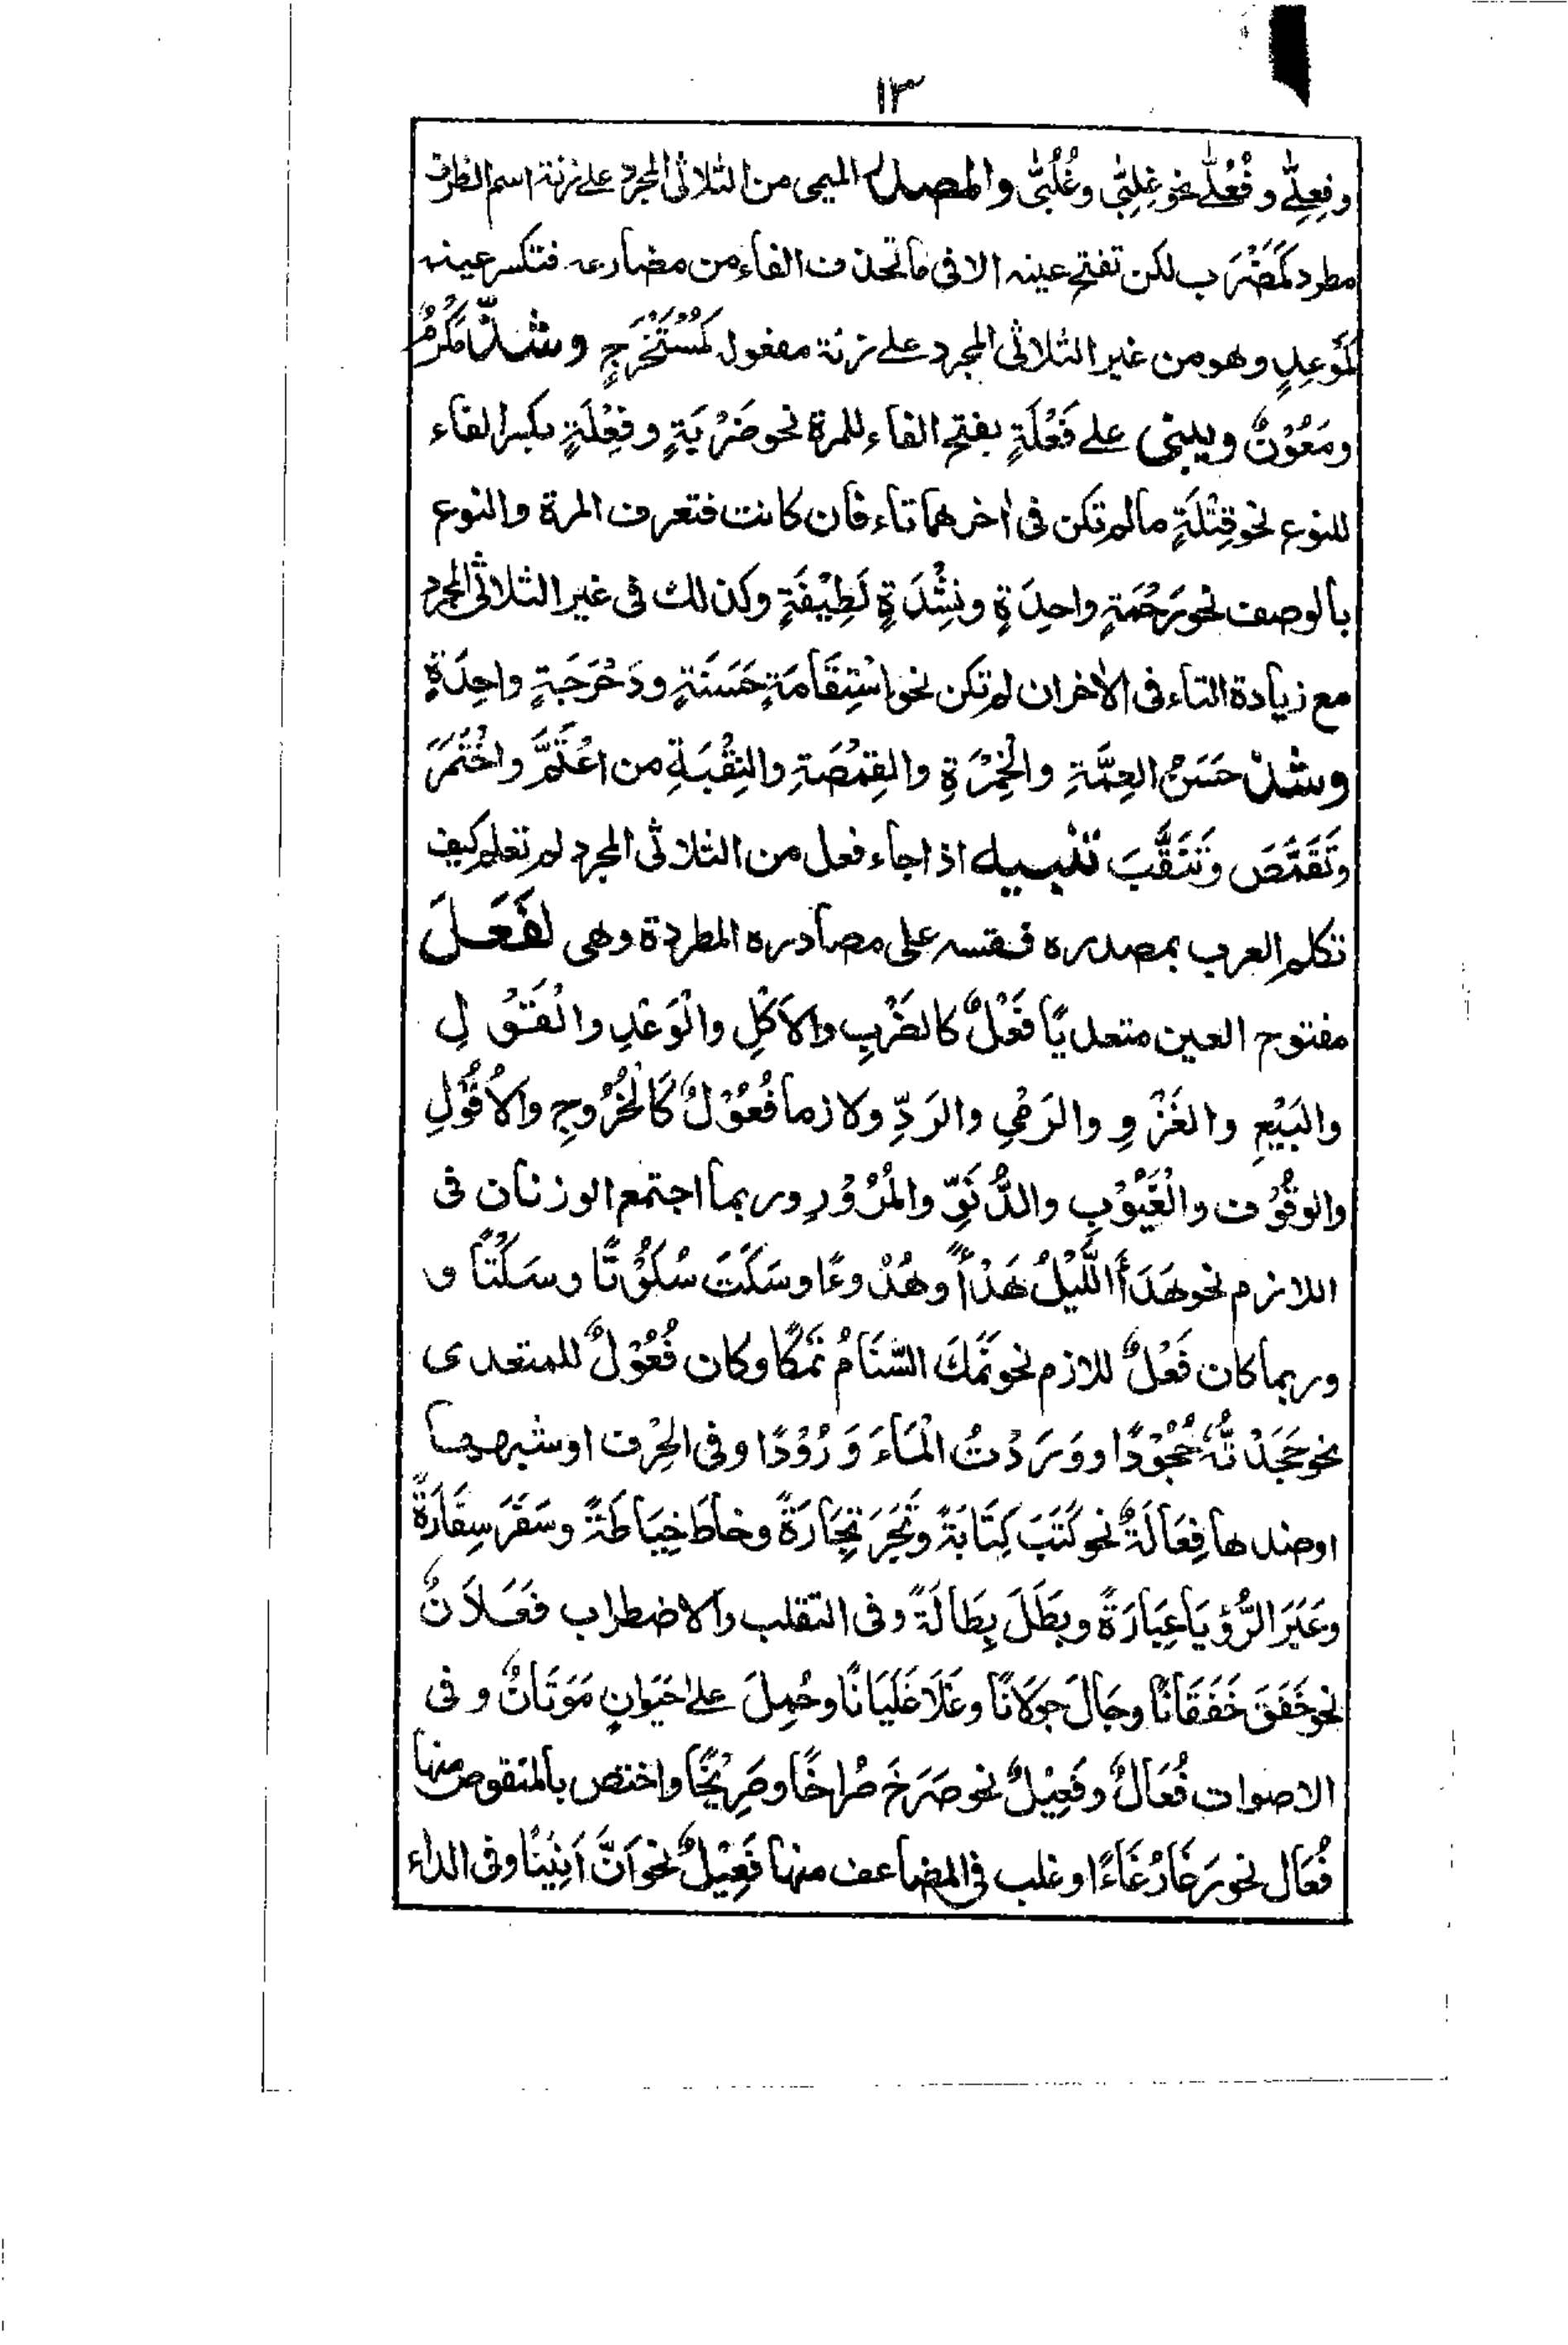 ١٣
وفِعِلّٰى وفُعُلّٰى نحو غِلِبّٰى وغُلُبّٰى والمصدر الميمى من الثلاثى المجرد على زنة اسم الظرف
مطرد كَمَضْرَب لكن تفتح عينه الا فى ما تحذف الفاء من مضارعه فتكسر عينه
كَمَوْعِدٍ وهو من غير الثلاثى المجرد على زنة مفعول كَمُسْتَخْرَجٍ وشذّ مَكْرُمٌ
ومَعُوْنٌ ويبنى على فَعْلَةٍ بفتح الفاء للمرة نحو ضَرْبَةٍ وفِعْلَةٍ بكسر الفاء
للنوع نحو قِتْلَةٍ مالم تكن فى اٰخرهما تاء فان كانت فتعرف المرة والنوع
بالوصف نحو رَحْمَةٍ واحِدَةٍ ونِشْدَةٍ لَطِيْفَةٍ وكذلك فى غير الثلاثى المجرد
مع زيادة التاء فى الاٰخر ان لم تكن نحو اسْتِقَامَةٍ حَسَنَةٍ ودَحْرَجَةٍ واحِدَةٍ
وشذ حَسَنُ العِمَّةِ والخِمْرَةِ والقِمْصَةِ والنِقْبَةِ من اعْتَمَّ واخْتَمَرَ
وتَقَمَّصَ وتَنَقَّبَ تنبيه اذا جاء فعل من الثلاثى المجرد لم تعلم كيف
تكلم العرب بمصدره فقسه على مصادره المطردة وهى لفَعَلَ
مفتوح العين متعديًا فَعْلٌ كالضَرْبِ والاَكْلِ والْوَعْدِ والْقَوْلِ
والبَيْعِ والغَزْوِ والرَمْيِ والرَدِّ ولازما فُعُوْلٌ كَالْخُرُوجِ والاُفُوْلِ
والوقُوْف والْغُيُوْبِ والدُّنُوِّ والمُرُوْرِ وربما اجتمع الوزنان فى
اللازم نحو هَدَأَ اللَّيْلُ هَدْأً وهُدْوءًا وسَكَتَ سُكُوْتًا وسَكْتًا و
وربما كان فَعْلٌ للازم نحو تَمَكَ السَّنَامُ تَمْكًا وكان فُعُوْلٌ للمتعدى
نحو جَحَدْتُّهُ جُحُوْدًا ووَرَدْتُ الْمَاءَ وُرُوْدًا وفى الحِرْف او شبهها
او ضدها فِعَالَةٌ نحو كَتَبَ كِتَابَةً وتَجَرَ تِجَارَةً وخاطَ خِيَاطَةً وسَفَرَ سِفَارَةً
وعَبَرَ الرُّؤْيَا عِبَارَةً وبطَلَ بِطَالَةً وفى التقلب والاضطراب فَعَلَانٌ
نحو خَفَقَ خَفَقَانًا وجَالَ جوَلَانًا وغَلَا غَلَيَانًا وحُمِلَ على حَيَوانٍ مَوَتَانٌ وفى
الاصوات فُعَالٌ وفَعِيْلٌ نحو صَرَخَ صُراخًا وصَرِيْخًا واختص بالمنقوص منها
فُعَال نحو رَغَا رُغَاءً او غلب فى المضاعف منها فَعِيْلٌ نحو اَنَّ اَنِيْنًا وفى الداء